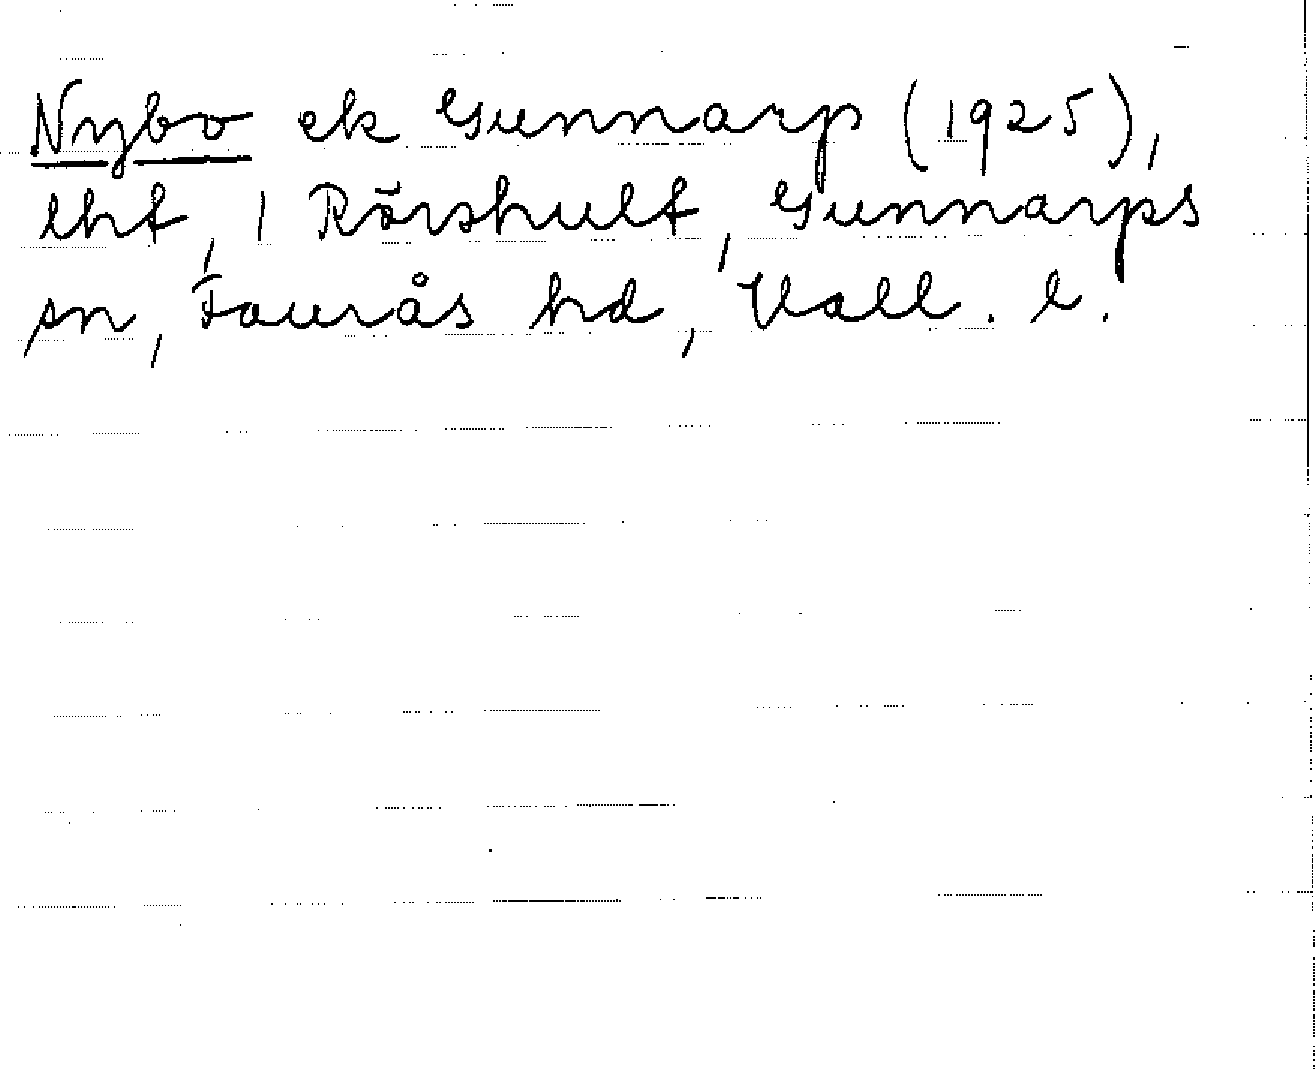 Nybo ek Gunnarp (1925),
lht, 1 Rörshult, Gunnarps
sn, Faurås hd, Hall. l.